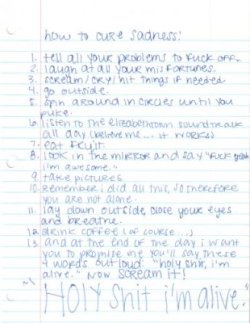 how to cure sadness:
1. tell all your problems to fuck off.
2. laugh at all your misfortunes.
3. scream/cry/hit things if needed
4. go outside.
5. spin around in circles until you
puke.
6. listen to the elizabethtown soundtrack
all day (believe me... it works)
7. eat fruit.
8. look in the mirror and say "fuck yeah
i'm awesome."
9. take pictures.
10. remember: i did all this, so therefore
you are not alone.
11. lay down outside, close your eyes
and breathe.
12. drink coffee (of course...)
13. and at the end of the day i want
you to promise me you'll say these
4 words out loud. "holy shit, i'm
alive." now scream it!
"HOLY shit i'm alive."